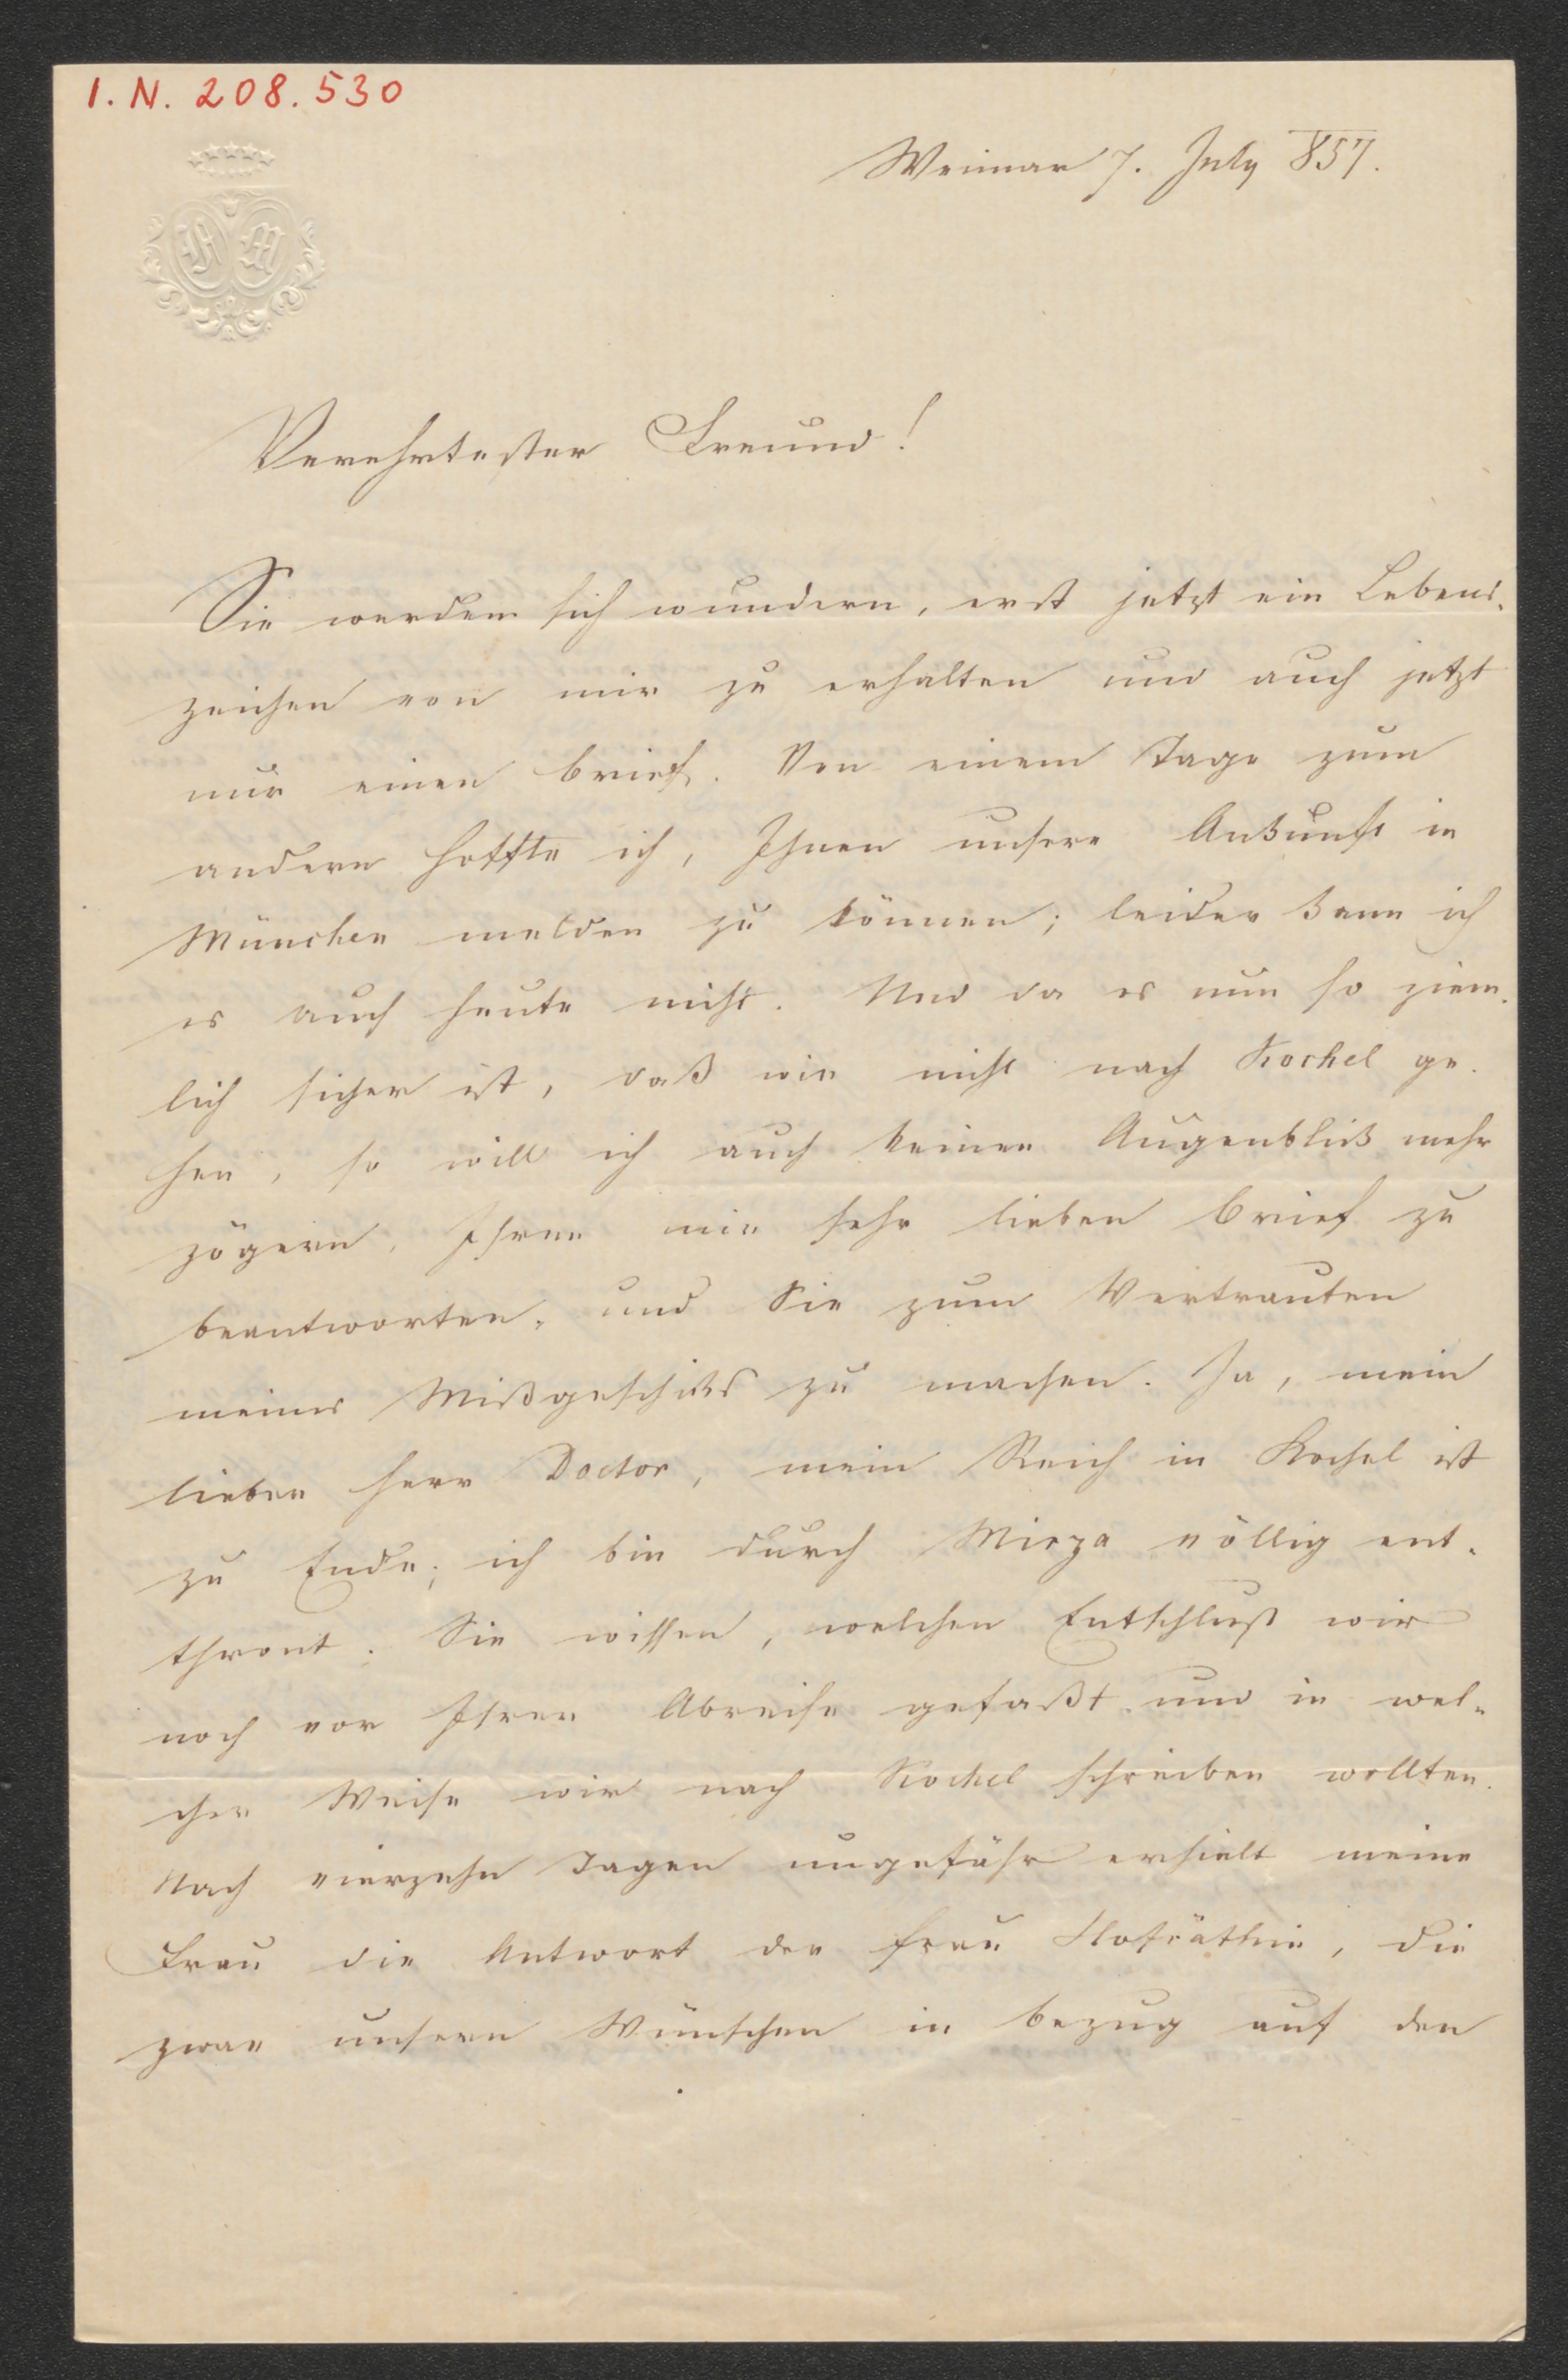 I. N. 208.530
Weimar 7. July 857.
Verehrtester Freund!
Sie werden sich wundern, erst jetzt ein Lebens-
zeichen von mir zu erhalten und auch jetzt
nur einen Brief. Von einem Tage zum
andern hoffte ich, Ihnen unsere Ankunft in
München melden zu können; leider kann ich
es auch heute nicht. Und da es nun so ziem-
lich sicher ist, daß wir nicht nach Kochel ge-
hen, so will ich auch keinen Augenblick mehr
zögern, Ihren mir sehr lieben Brief zu
beantworten, und Sie zum Vertrauten
meines Mißgeschicks zu machen. Ja, mein
lieber Herr Doctor, mein Reich in Kochel ist
zu Ende; ich bin durch Mirza völlig ent-
thront. Sie wissen, welchen Entschluß wir
noch vor Ihrer Abreise gefaßt und in wel-
cher Weise wir nach Kochel schreiben wollten.
Nach vierzehn Tagen ungefähr erhielt meine
Frau die Antwort der Frau Hofräthin, die
zwar unsern Wünschen in Bezug auf den